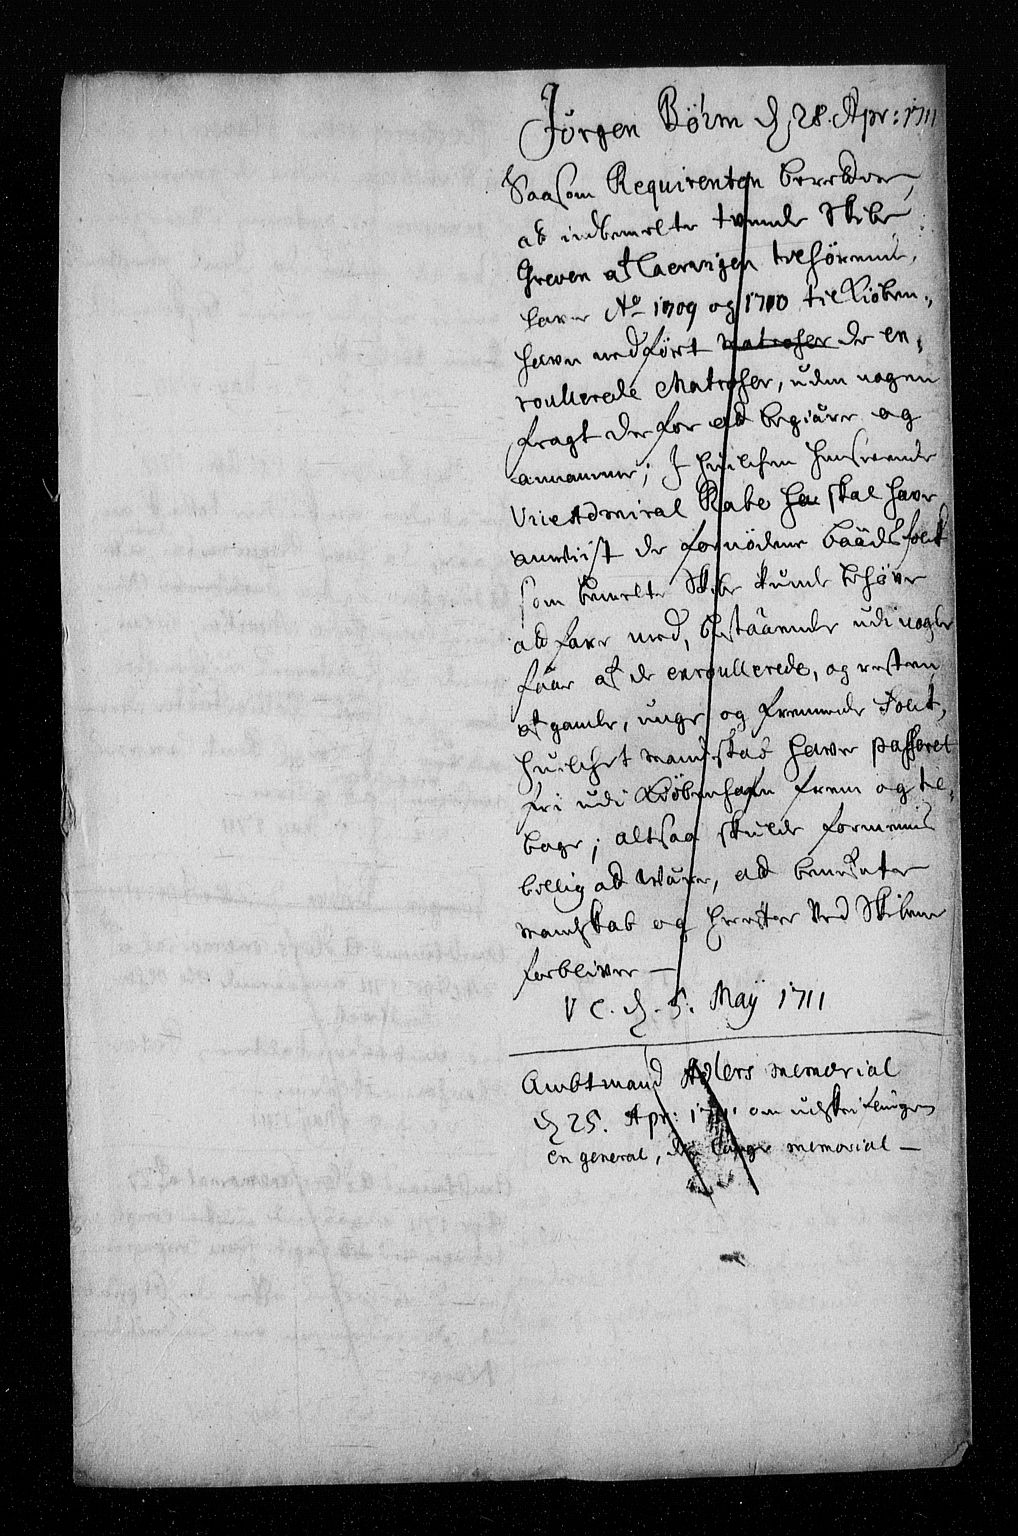 Jörgen Böhm d. 28. Apr: 1711
Saasom Requirenten beretter,
at indbemelte tvende Skibe
Greven af Laervigen tilhörende,
haver Aº 1709 og 1710 til Kiöben,,
havn nedfört matroser de en,,
roullerede Matroser, uden nogen
fragt derfor at begiære og
annamme; I huilchen henseende
Vice Admiral Rabe har skal have
anviist de fornödene baadsfolk
som bemelte Skibe kunde behöve
at fare med, bestaaende udi nogle
faae af de enroullerede, og resten
af gamle, unge og fremmede Folck,
huilchet mandskab haver passeret
fri udi Kiöbenhafn frem og til,,
bage; altsaa skulde formenis
billig at være, at benefnte
mandskab og herefter ved Skibene
forbliver —
V C. d. 5. Maÿ 1711
Ambtmand Adlers memorial
d 25. Apr: 1711 om udskrifningen
en general, den lange memorial —